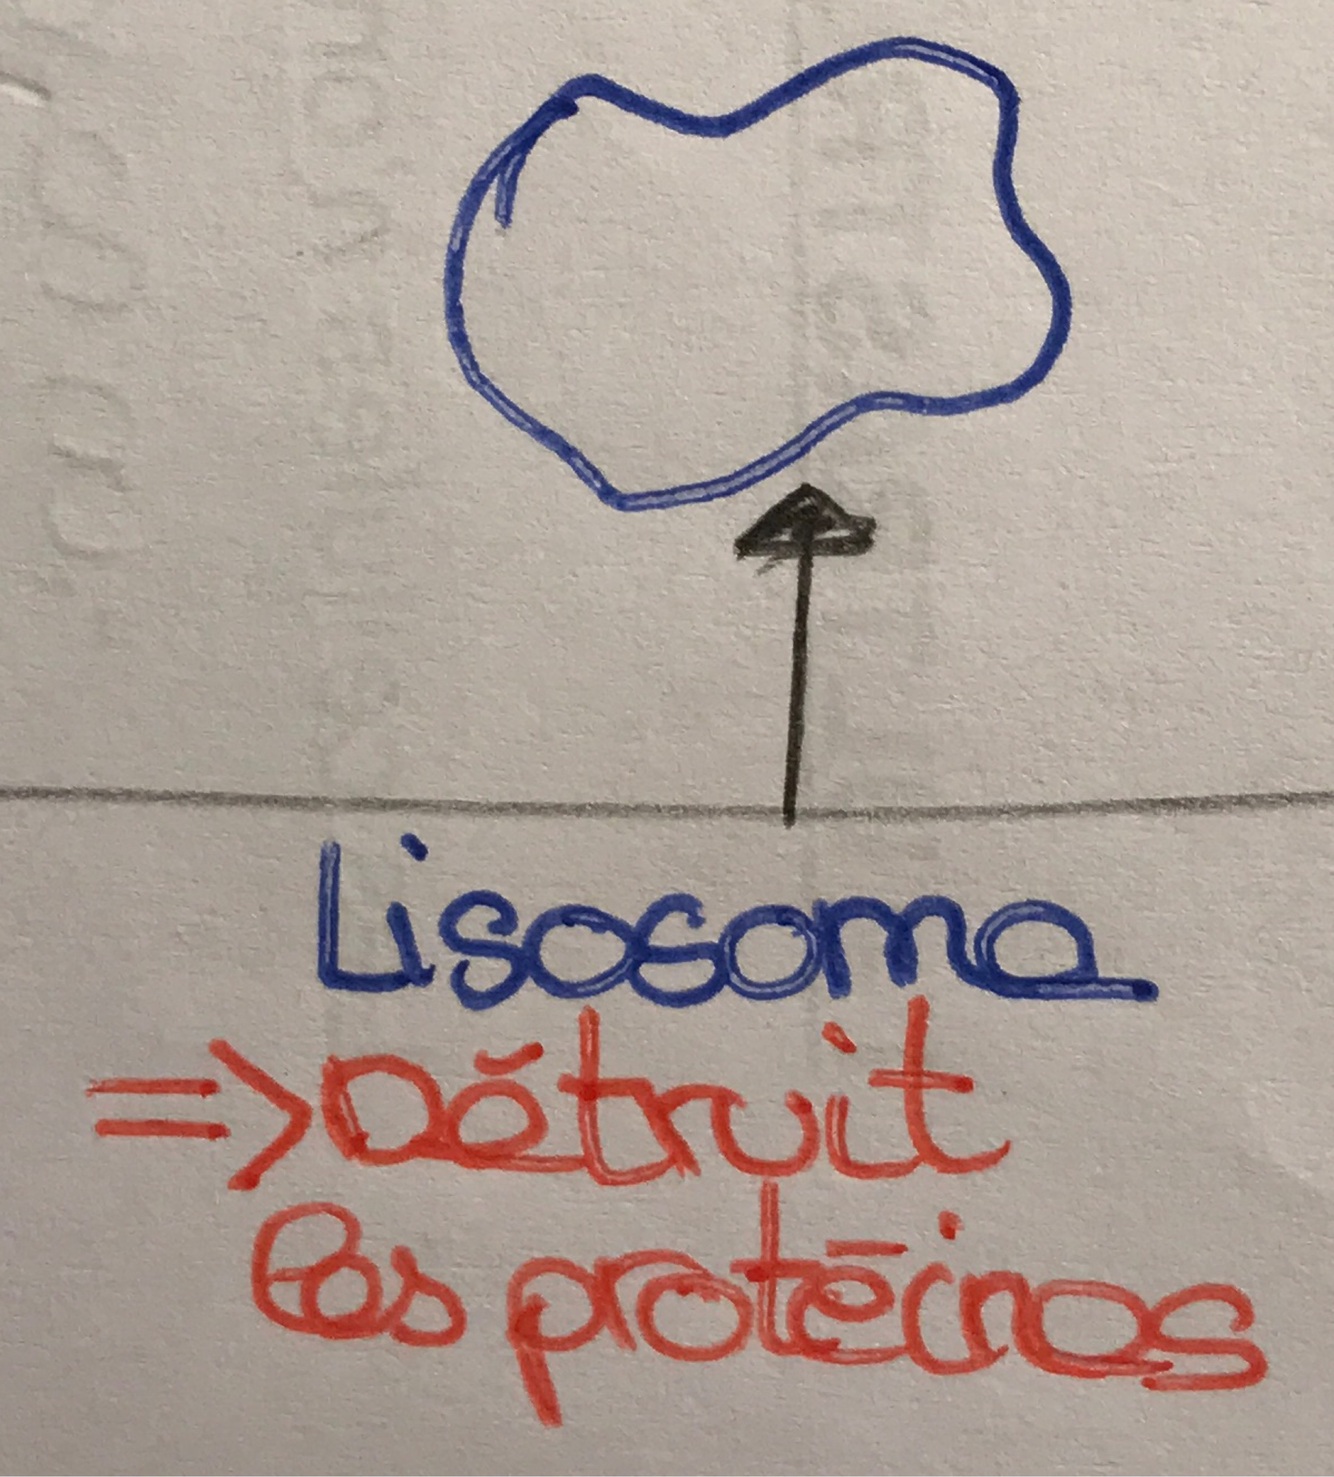 Lisosome
=> Détruit
les protéines